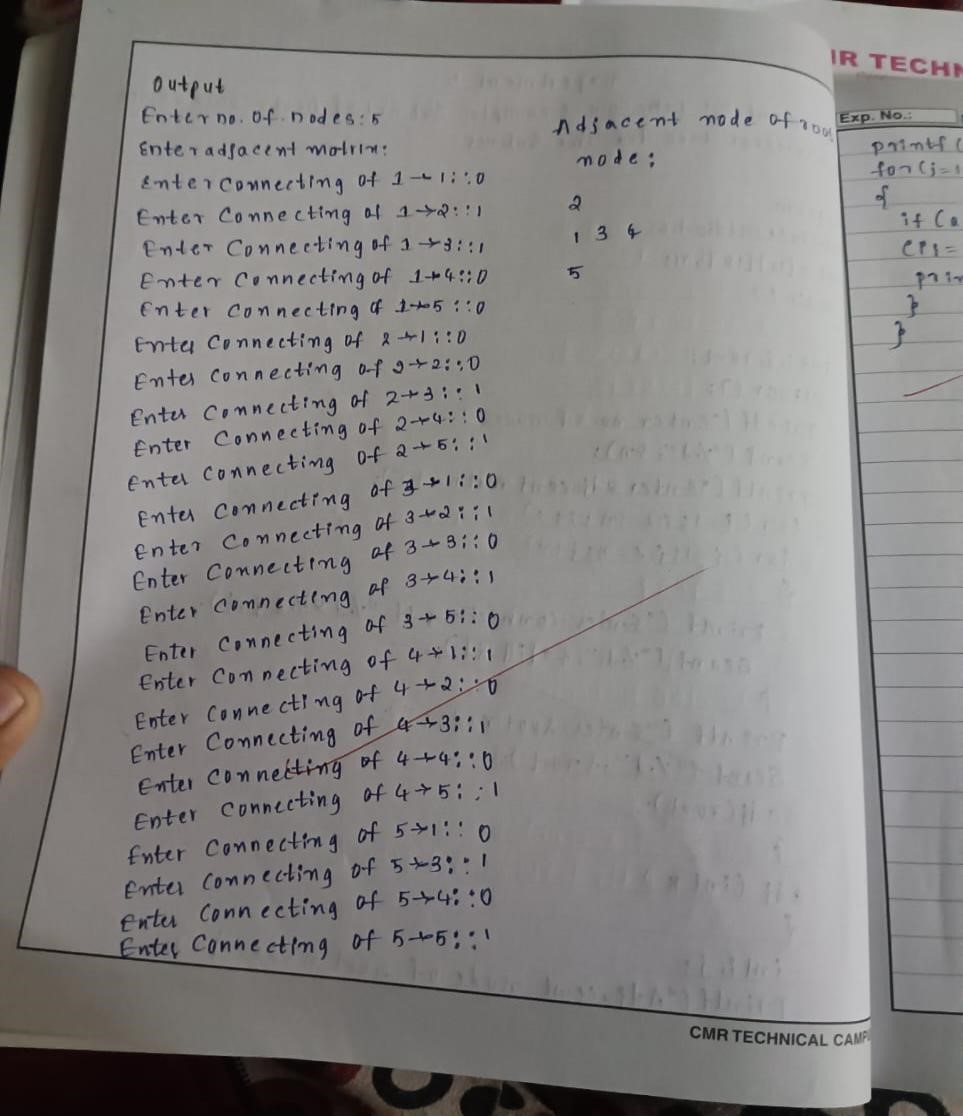 Output
Enter no. of nodes: 5
Enter adjacent matrix:
Enter Connecting of 1→1::0
Enter Connecting of 1→2::1
Enter Connecting of 1→3::1
Enter Connecting of 1→4::0
Enter Connecting of 1→5::0
Enter Connecting of 2→1::0
Enter Connecting of 2→2::0
Enter Connecting of 2→3::1
Enter Connecting of 2→4::0
Enter Connecting of 2→5::1
Enter Connecting of 3→1::0
Enter Connecting of 3→2::1
Enter Connecting of 3→3::0
Enter Connecting of 3→4::1
Enter Connecting of 3→5::0
Enter Connecting of 4→1::1
Enter Connecting of 4→2::0
Enter Connecting of 4→3::1
Enter Connecting of 4→4::0
Enter Connecting of 4→5::1
Enter Connecting of 5→1::0
Enter Connecting of 5→3::1
Enter Connecting of 5→4::0
Enter Connecting of 5→5::1
Adjacent node of root
node:
2
1 3 4
5
CMR TECHNICAL CAMP
MR TECHN
Exp. No.:
printf(
for(j=1
{
if(a
prin
}
}